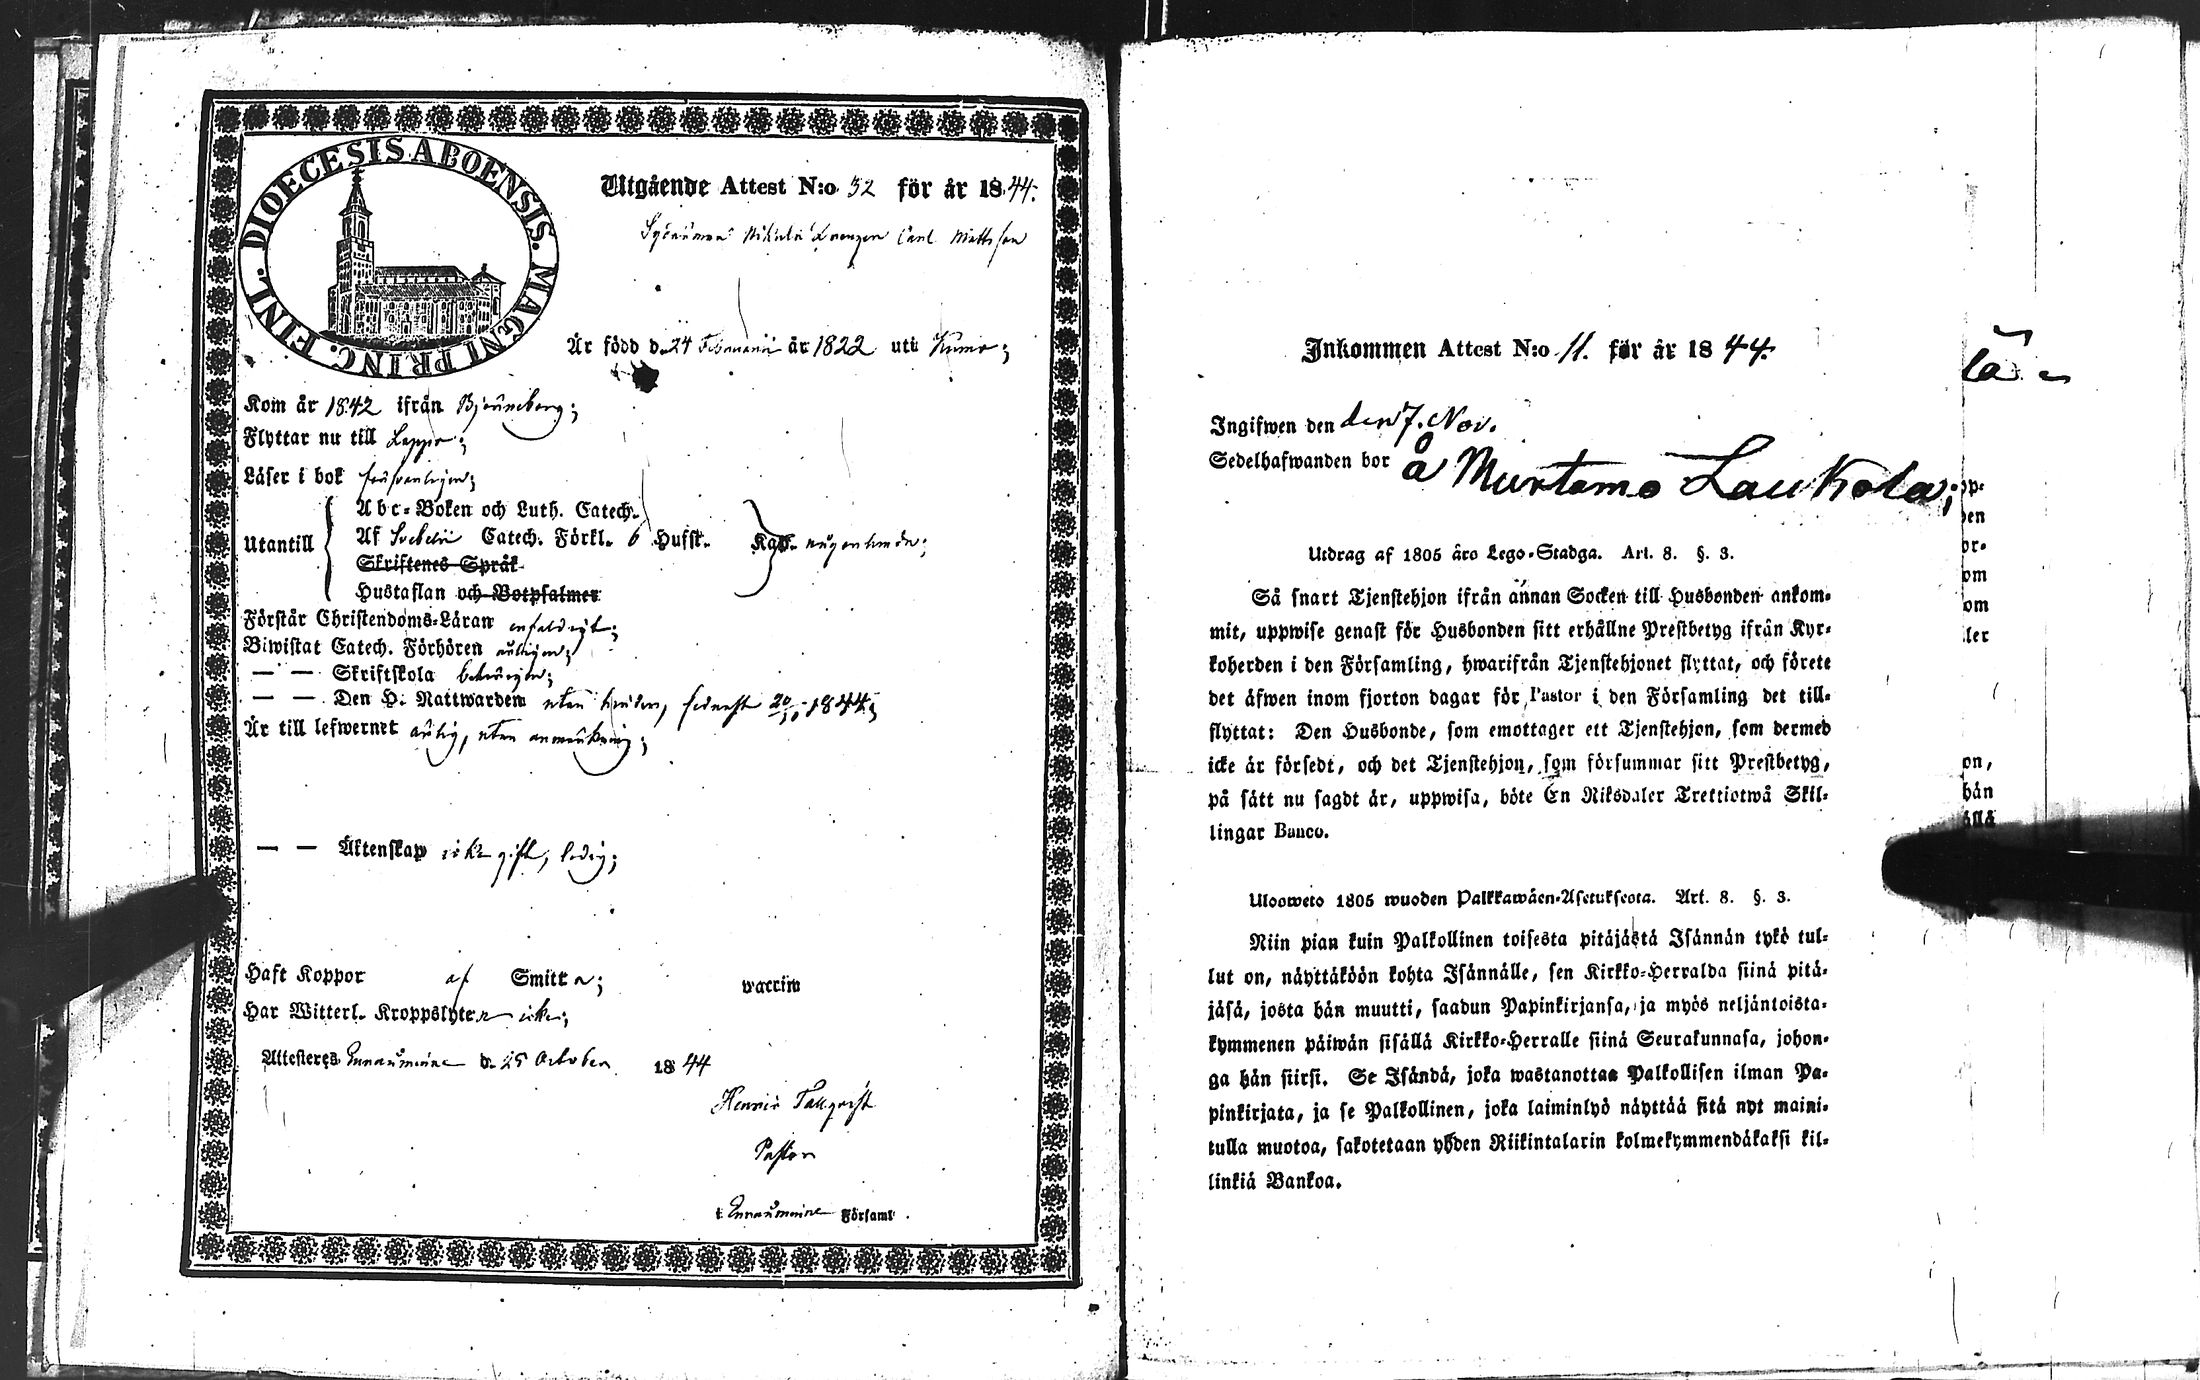 DIOECESIS ABOENSIS. MAGNI PRINC. FINL.
Utgående Attest N:o 52 för år 1844.
Carl Mattsson
Är född d. 24 Februarii år 1822 uti Kumo;
Kom år 1842 ifrån Björneborg;
Flyttar nu till Lappo;
Läser i bok försvarligen;
Utantill
Abc-Boken och Luth. Catech.
Af Svebelii Catech. Förkl. 6 Hufst. Kap. någorlunda;
Skriftenes Språk
Hustaflan och Botpsalmer
Förstår Christendoms-Läran enfaldigt;
Biwistat Catech. Förhören årligen;
— — Skriftskola behörigen;
— — Den H. Nattwarden utan hinder, sednast 20/10 1844;
Är till lefwernet ärlig, utan anmärkning;
— — Äktenskap icke gift, ledig;
Haft Koppor af Smitta; waccin
Har Witterl. Kroppslyten icke;
Attesteres Ennäumine d. 25 October 1844
Henric Tallqvist
Pastor
i Församl.
Inkommen Attest N:o 11. för år 1844.
Ingifwen den den 7. Nov.
Sedelhafwanden bor å Murtamo Laukola;
Utdrag af 1805 åro Lego-Stadga. Art. 8. §. 3.
Så snart Tjenstehjon ifrån annan Socken till Husbonden ankom-
mit, uppwise genast för Husbonden sitt erhållne Prestbetyg ifrån Kyr-
koherden i den Församling, hwarifrån Tjenstehjonet flyttat, och förete
det äfwen inom fjorton dagar för Pastor i den Församling det till-
flyttat: Den Husbonde, som emottager ett Tjenstehjon, som dermed
icke är försedt, och det Tjenstehjon, som försummar sitt Prestbetyg,
på sätt nu sagdt är, uppwisa, böte En Riksdaler Trettiotwå Skil-
lingar Banco.
Ulosweto 1805 wuoden Palkkawäen-Asetuksesta. Art. 8. §. 3.
Niin pian kuin Palkollinen toisesta pitäjästä Isännän tykö tul-
lut on, näyttäköön kohta Isännälle, sen Kirkko-Herralda siinä pitä-
jäsä, josta hän muutti, saadun Papinkirjansa, ja myös neljäntoista-
kymmenen päiwän sisällä Kirkko-Herralle siinä Seurakunnasa, johon-
ga hän siirsi. Se Isändä, joka wastanottaa Palkollisen ilman Pa-
pinkirjata, ja se Palkollinen, joka laiminlyö näyttää sitä nyt maini-
tulla muotoa, sakotetaan yhden Riikintalarin kolmekymmendäkaksi kil-
linkiä Bankoa.